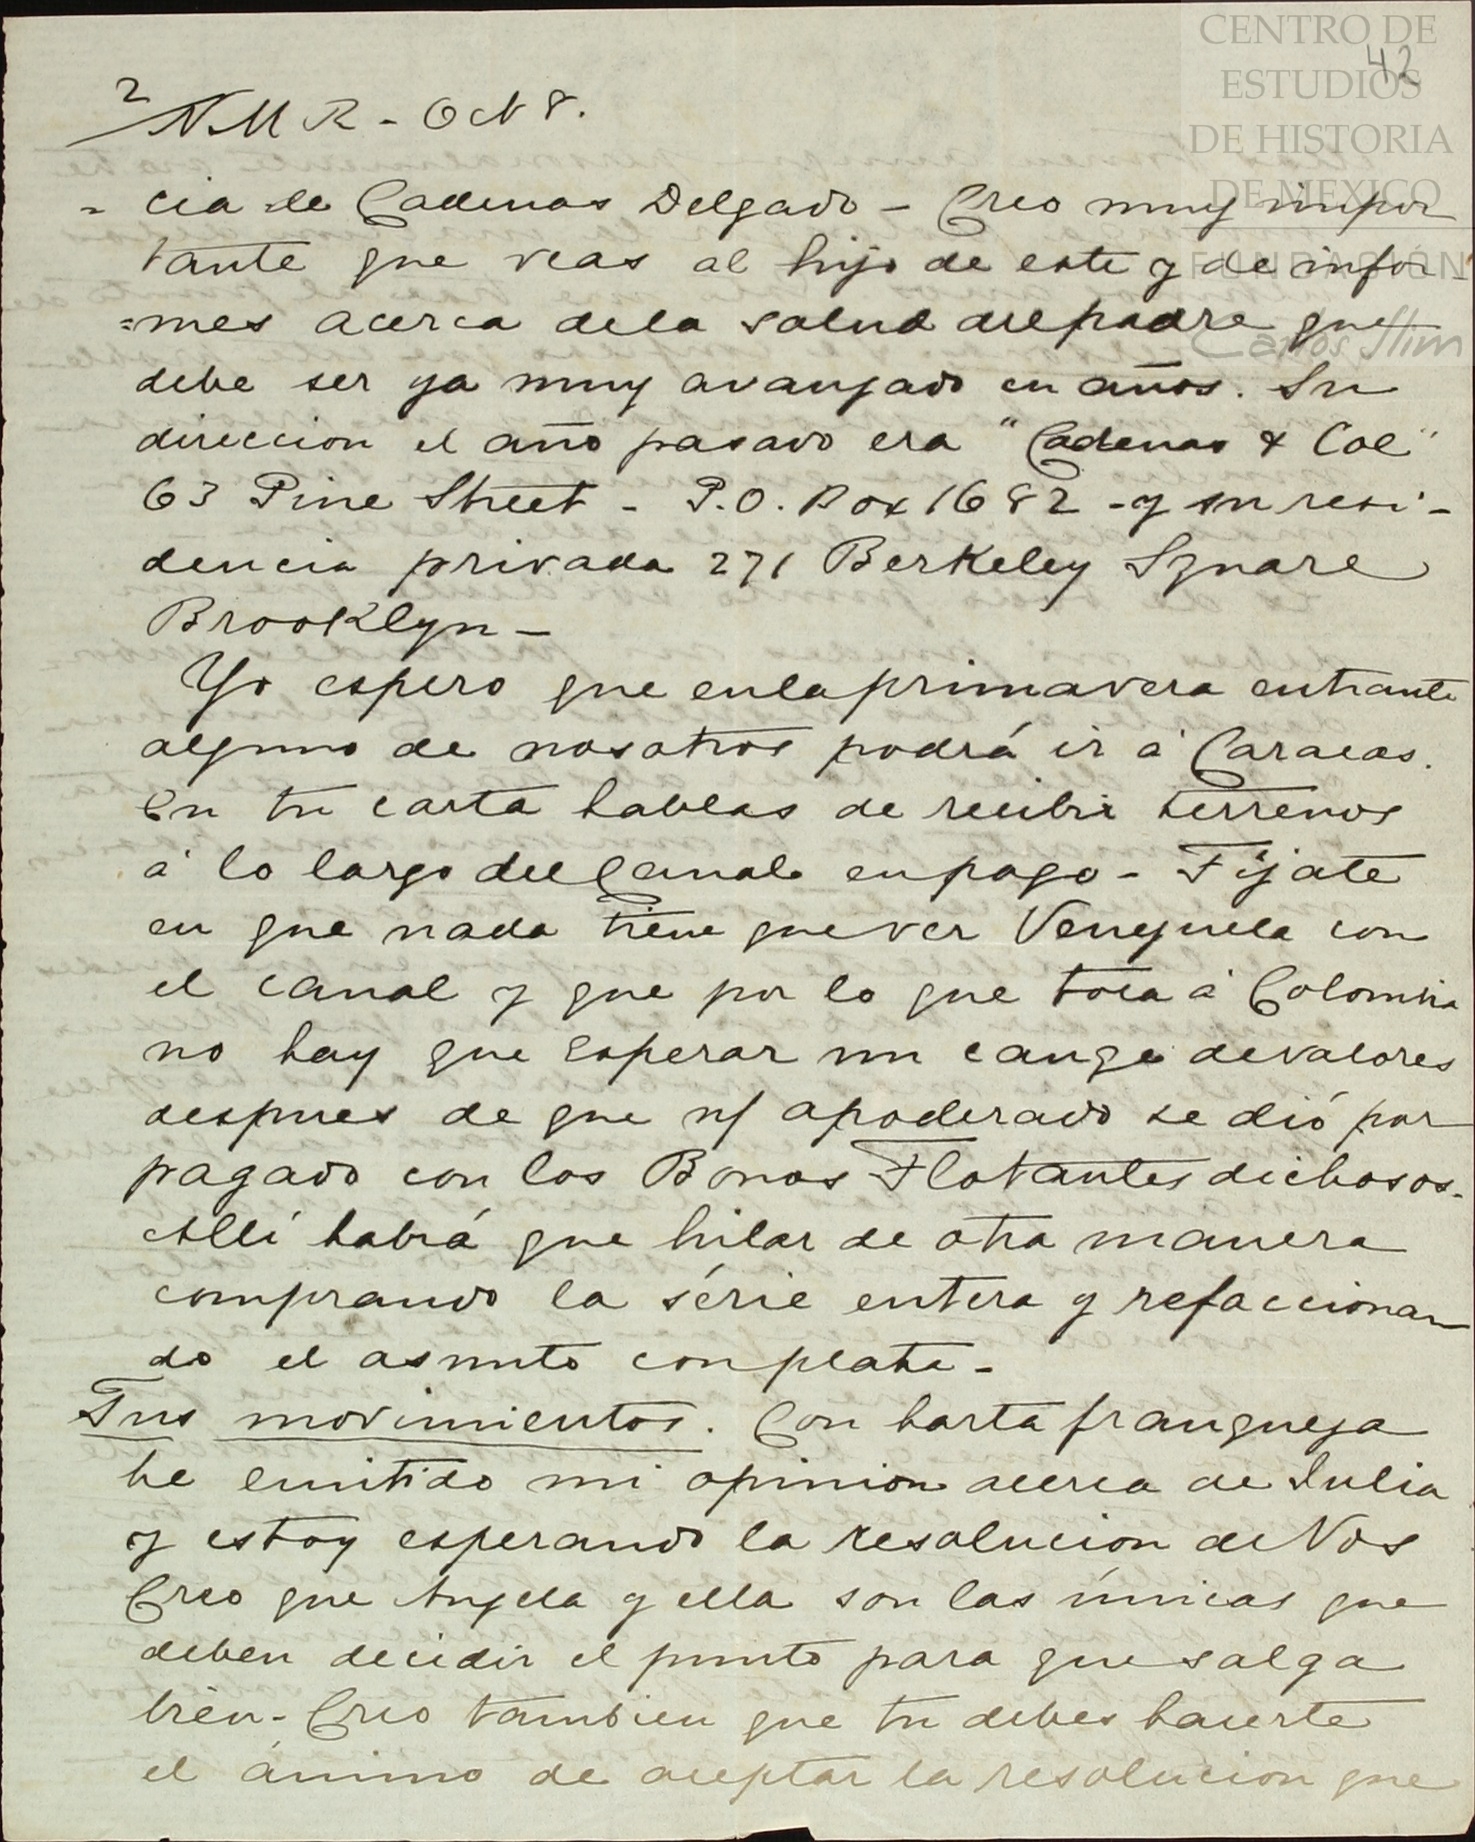 CENTRO DE
ESTUDIOS
DE HISTORIA
DE MEXICO
FUNDACIÓN
Carlos Slim
42
2
N.M R - Oct 8.
- cia de Cadenas Delgado - Creo muy impor
tante que veas al hijo de este y de infor-
=mes acerca de la salud del padre que
debe ser ya muy avanzado en años. Su
direccion el año pasado era "Cadenas & Coe"
63 Pine Street - P.O. Box 1682 - y su resi-
dencia privada 271 Berkeley Square
Brooklyn -
Yo espero que en la primavera entrante
alguno de nosotros podrá ir á Caracas.
En tu carta hablas de recibir terrenos
á lo largo del Canal en pago - Fíjate
en que nada tiene que ver Venezuela con
el canal y que por lo que toca á Colombia
no hay que esperar un cange de valores
despues de que n/ apoderado se dió por
pagado con los Bonos Flotantes dichosos.
Allí habrá que hilar de otra manera
comprando la série entera y refaccionan
do el asunto con plata -
Tus movimientos. Con harta franqueza
he emitido mi opinion acerca de Julia
y estoy esperando la resolucion de Vos
Creo que Angela y ella son las únicas que
deben decidir el punto para que salga
bien - Creo tambien que tu debes hacerte
el ánimo de aceptar la resolucion que